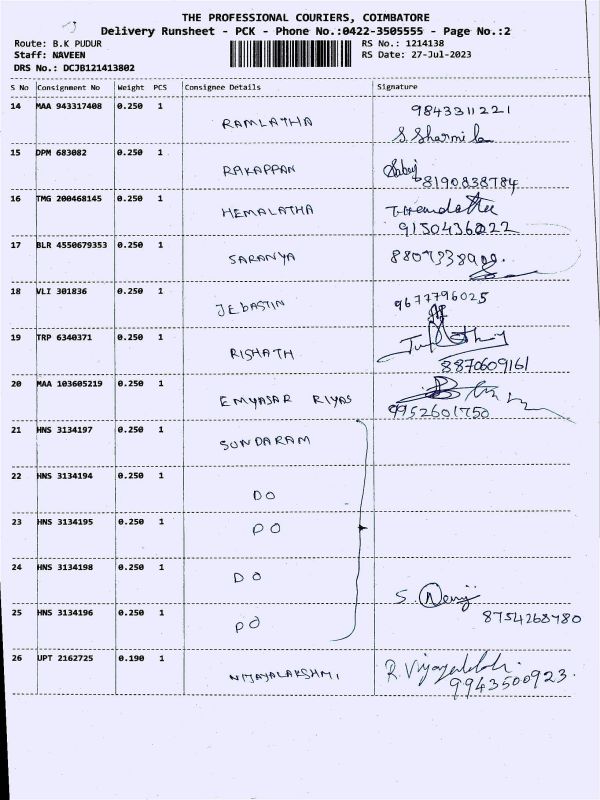 THE PROFESSIONAL COURIERS, COIMBATORE
Delivery Runsheet - PCK - Phone No.:0422-3505555 - Page No.:2
Route: B.K PUDUR RS No.: 1214138
Staff: NAVEEN RS Date: 27-Jul-2023
DRS No.: DCJB121413802
S No Consignment No Weight PCS Consignee Details Signature
14 MAA 943317408 0.250 1 RAMLATHA 9843311221
S. Sharmila
15 DPM 683082 0.250 1 RAKAPPAN
8190838784
16 TMG 200468145 0.250 1 HEMALATHA
9150436022
17 BLR 4550679353 0.250 1 SARANYA
18 VLI 301836 0.250 1 JEBASTIN 9677796025
19 TRP 6340371 0.250 1 RISHATH
8870609161
20 MAA 103605219 0.250 1 EMYASAR RIYAS
9952601750
21 HNS 3134197 0.250 1 SUNDARAM
22 HNS 3134194 0.250 1 DO
23 HNS 3134195 0.250 1 DO
24 HNS 3134198 0.250 1 DO
S.
25 HNS 3134196 0.250 1 DO 8754268780
26 UPT 2162725 0.190 1 VIJAYALAKSHMI R. Vijayalakshmi
9943500923.